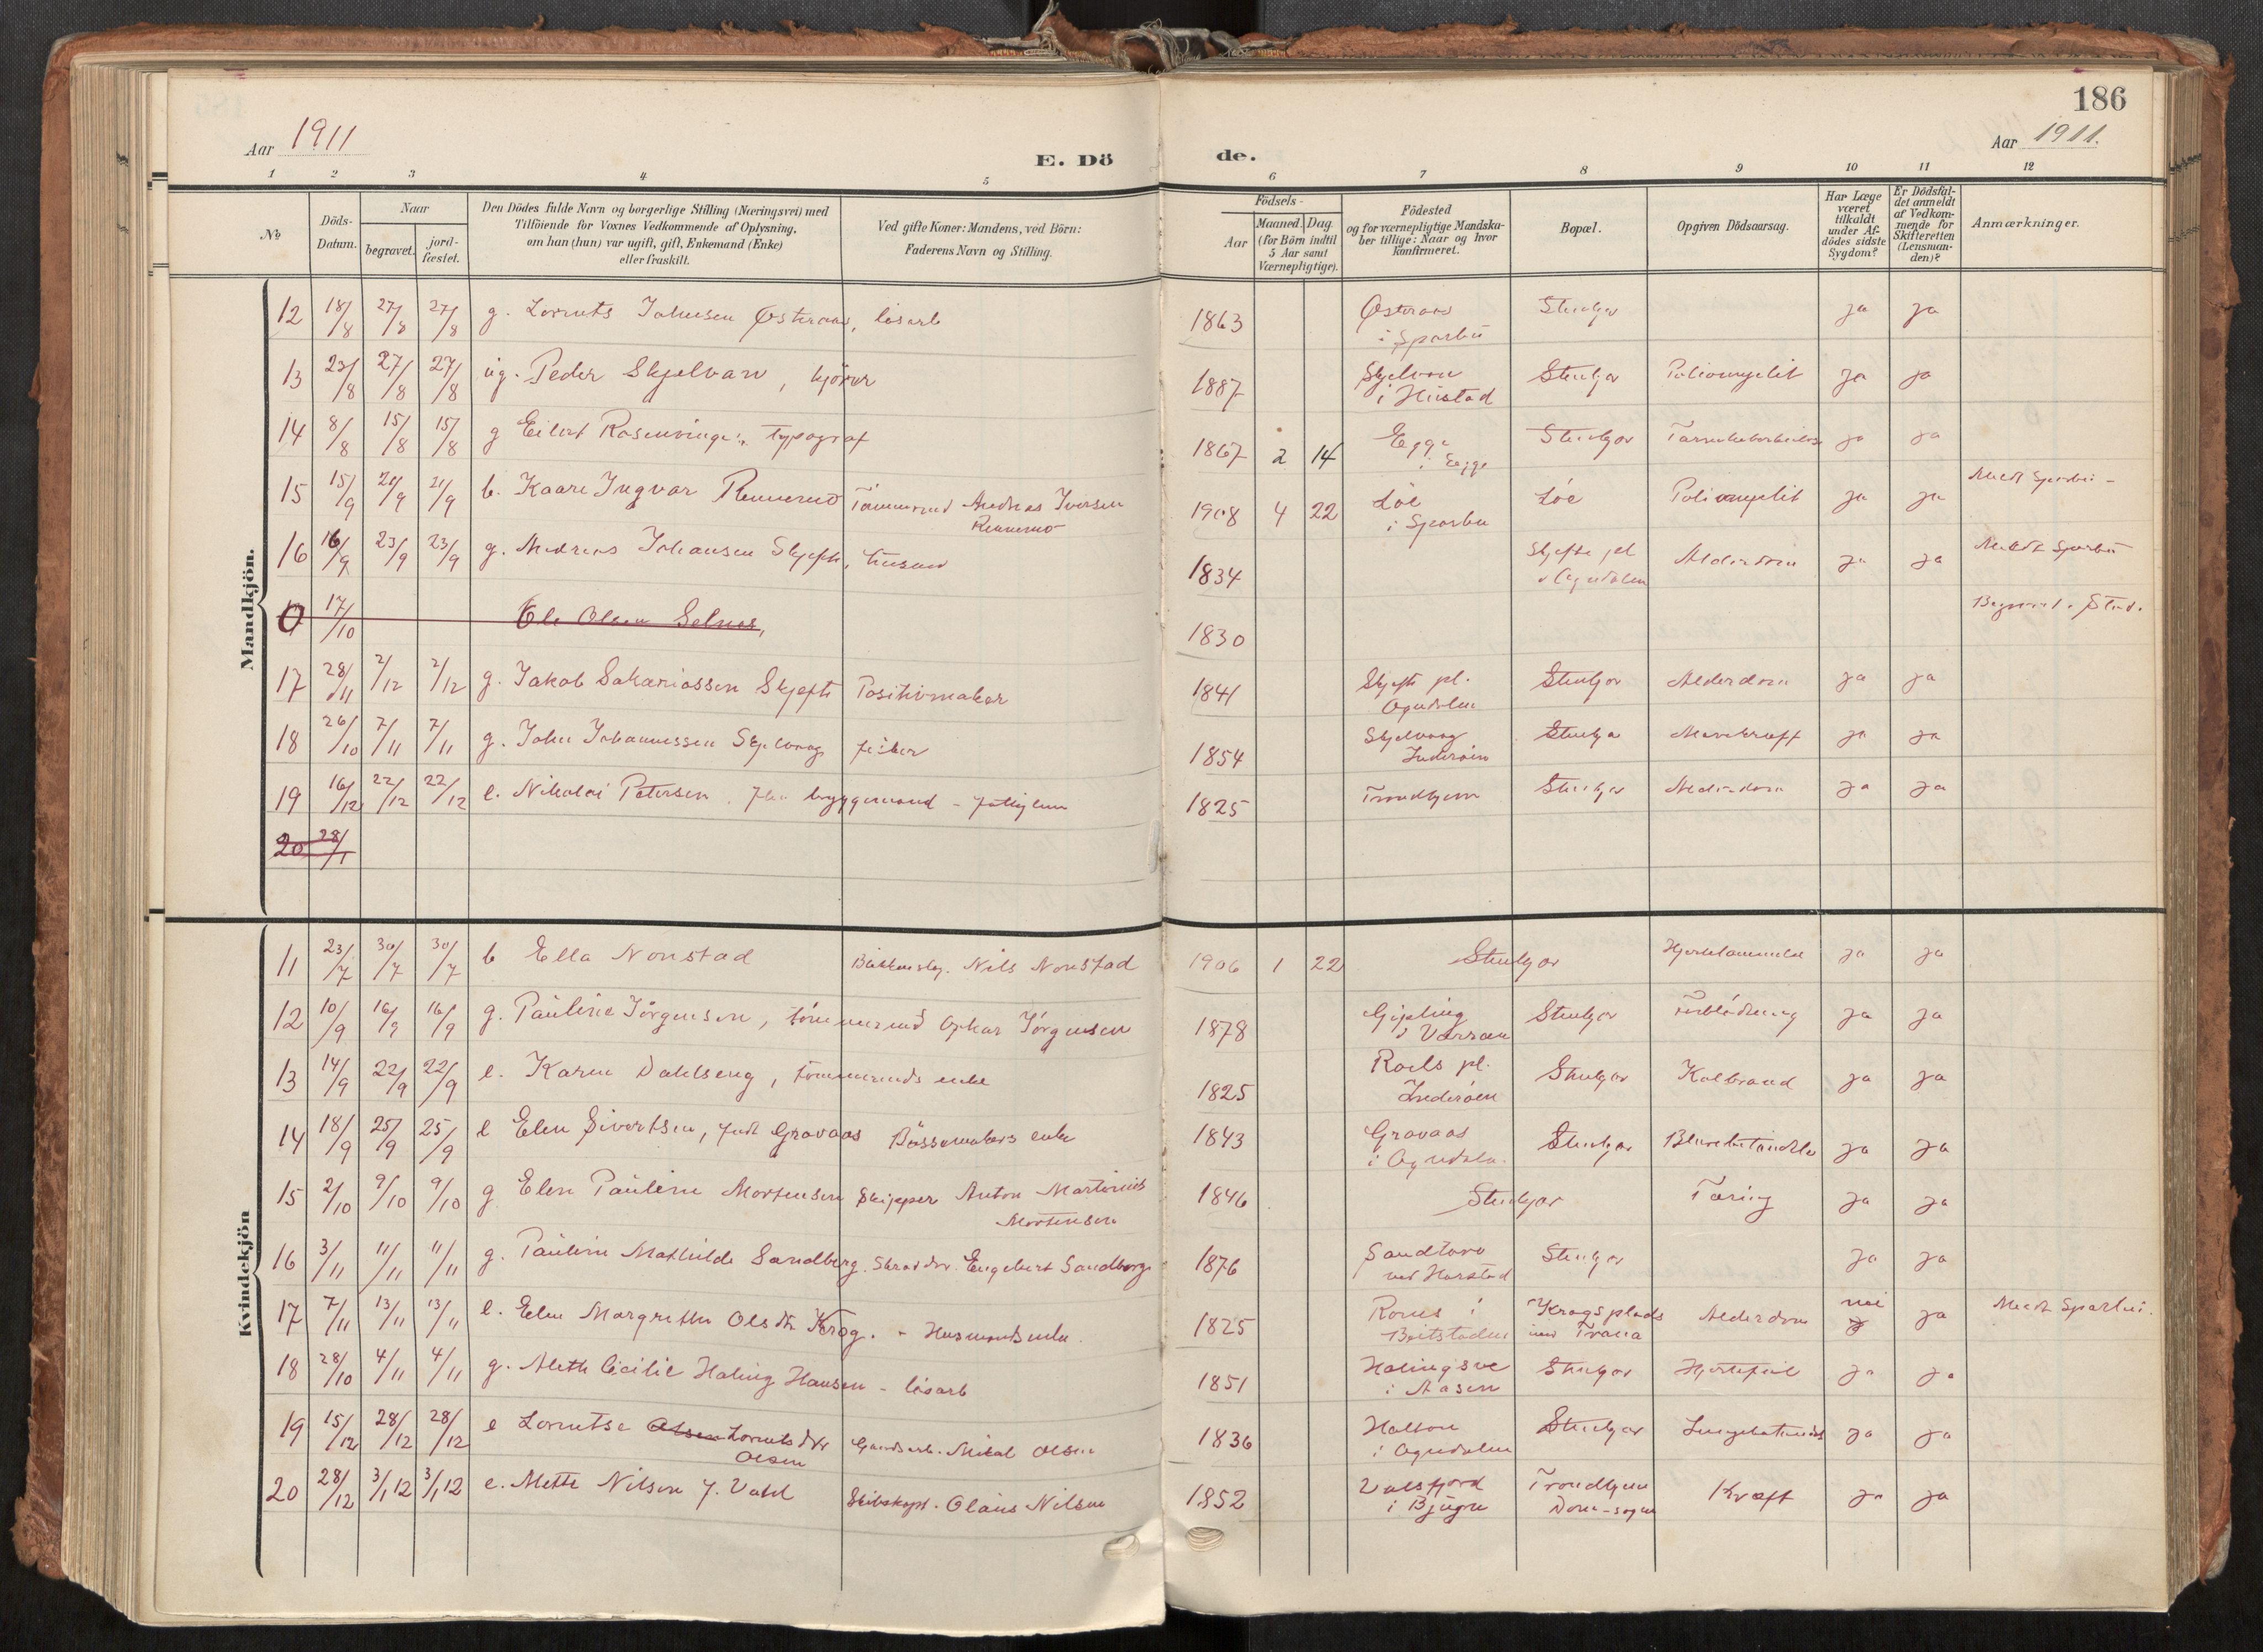 186
Aar 1911
E. Dö de.
Aar 1911.
1 2 3 4 5 6 7 8 9 10 11 12
№
Döds-Datum.
Naar
begravet.
jord-fæstet.
Den Dödes fulde Navn og borgerlige Stilling (Næringsvei) med
Tilföiende for Voxnes Vedkommende af Oplysning,
om han (hun) var ugift, gift, Enkemand (Enke)
eller fraskilt.
Ved gifte Koner: Mandens, ved Börn:
Faderens Navn og Stilling.
Födsels-
Aar
Maaned. Dag.
(for Börn indtil
5 Aar samt
Værnepligtige).
Födested
og for værnepligtige Mandska-
ber tillige: Naar og hvor
konfirmeret.
Bopæl.
Opgiven Dödsaarsag.
Har Læge
været
tilkaldt
under Af-
dödes sidste
Sygdom?
Er Dödsfal-
det anmeldt
af Vedkom-
mende for
Skifteretten
(Lensman-
den)?
Anmærkninger.
Mandkjön.
12 18/8 27/8 27/8 g. Lornts Johnsen Østeraas, lösarb 1863 Østeraas Stenkjer ja ja
i Sparbu
13 23/8 27/8 27/8 ug. Peder Skjelvan, kjörer 1887 Skjelvan Stenkjer Poliomyelit ja ja
i Hustad
14 8/8 15/8 15/8 g Eilert Rosenvinge, typograf 1867 2 14 Egge Stenkjer ja ja
i Egge
15 15/9 21/9 21/9 b. Kaare Ingvar Rennemo Tömmermd Andreas Iversen 1908 4 22 Löe Löe Poliomyelit ja ja Meldt Sparbu -
Rennemo i Sparbu
16 16/9 23/9 23/9 g. Andreas Johansen Skjefte, husmd 1834 Skjefte pl Alderdom ja ja Meldt Sparbu
i Ogndalen
0 17/10 Ole Olsen Selnes, 1830 Begravet i Stod.
17 28/11 2/12 2/12 g. Jakob Sakariassen Skjefte Positivmaker 1841 Skjefte pl. Stenkjer Alderdom ja ja
Ogndalen
18 26/10 7/11 7/11 g. John Johannessen Skjelvaag fisker 1854 Skjelvaag Stenkjer Mavekræft ja ja
Inderöen
19 16/12 22/12 22/12 e. Nikolai Petersen, bryggemand - fattiglem 1825 Trondhjem Stenkjer Alderdom ja ja
20 28/1
Kvindekjön
11 23/7 30/7 30/7 b Ella Nonstad Nils Nonstad 1906 1 22 Stenkjer Hjertelammelse ja ja
12 10/9 16/9 16/9 g. Pauline Jörgensen, tömmermd Oskar Jörgensen 1878 Gipling Stenkjer Forblödning ja ja
i Værran
13 14/9 22/9 22/9 e. Karen Dahlseng, tömmermds enke 1825 Roels pl. Stenkjer Kolbrand ja ja
Inderöen
14 18/9 25/9 25/9 e Elen Sivertsen, født Gravaas Bössemakers enke 1843 Gravaas Stenkjer ja ja
i Ogndalen
15 2/10 9/10 9/10 g Elen Pauline Mortensen Skipper Anton Martinius 1846 Stenkjer Tæring ja ja
Mortensen
16 3/11 11/11 11/11 g. Pauline Mathilde Sandberg. Skrædder Engebert Sandberg 1876 Sandtorv Stenkjer ja ja
ved Harstad
17 7/11 13/11 13/11 e. Elen Margrethe Olsdtr Krog. - Husmands enke. 1825 i Krogsplads Alderdom nei ja Meldt Sparbu.
Beitstaden
18 28/10 4/11 4/11 g. Meth Cicilie Haling Hansen - lösarb 1851 Halingsve Stenkjer Hjertefeil ja ja
i Aasen
19 15/12 28/12 28/12 e Lorntse Olsen Lorntsdtr Gaardsarb. Mikal Olsen 1836 Stenkjer ja ja
Olsen i Ogndalen
20 28/12 3/1 12 3/1 12 e. Mette Nilsen f. Vahl Skibskapt. Olaus Nilsen 1852 Valsfjord Trondhjem Kræft ja ja
i Bjugn Dom-sogn